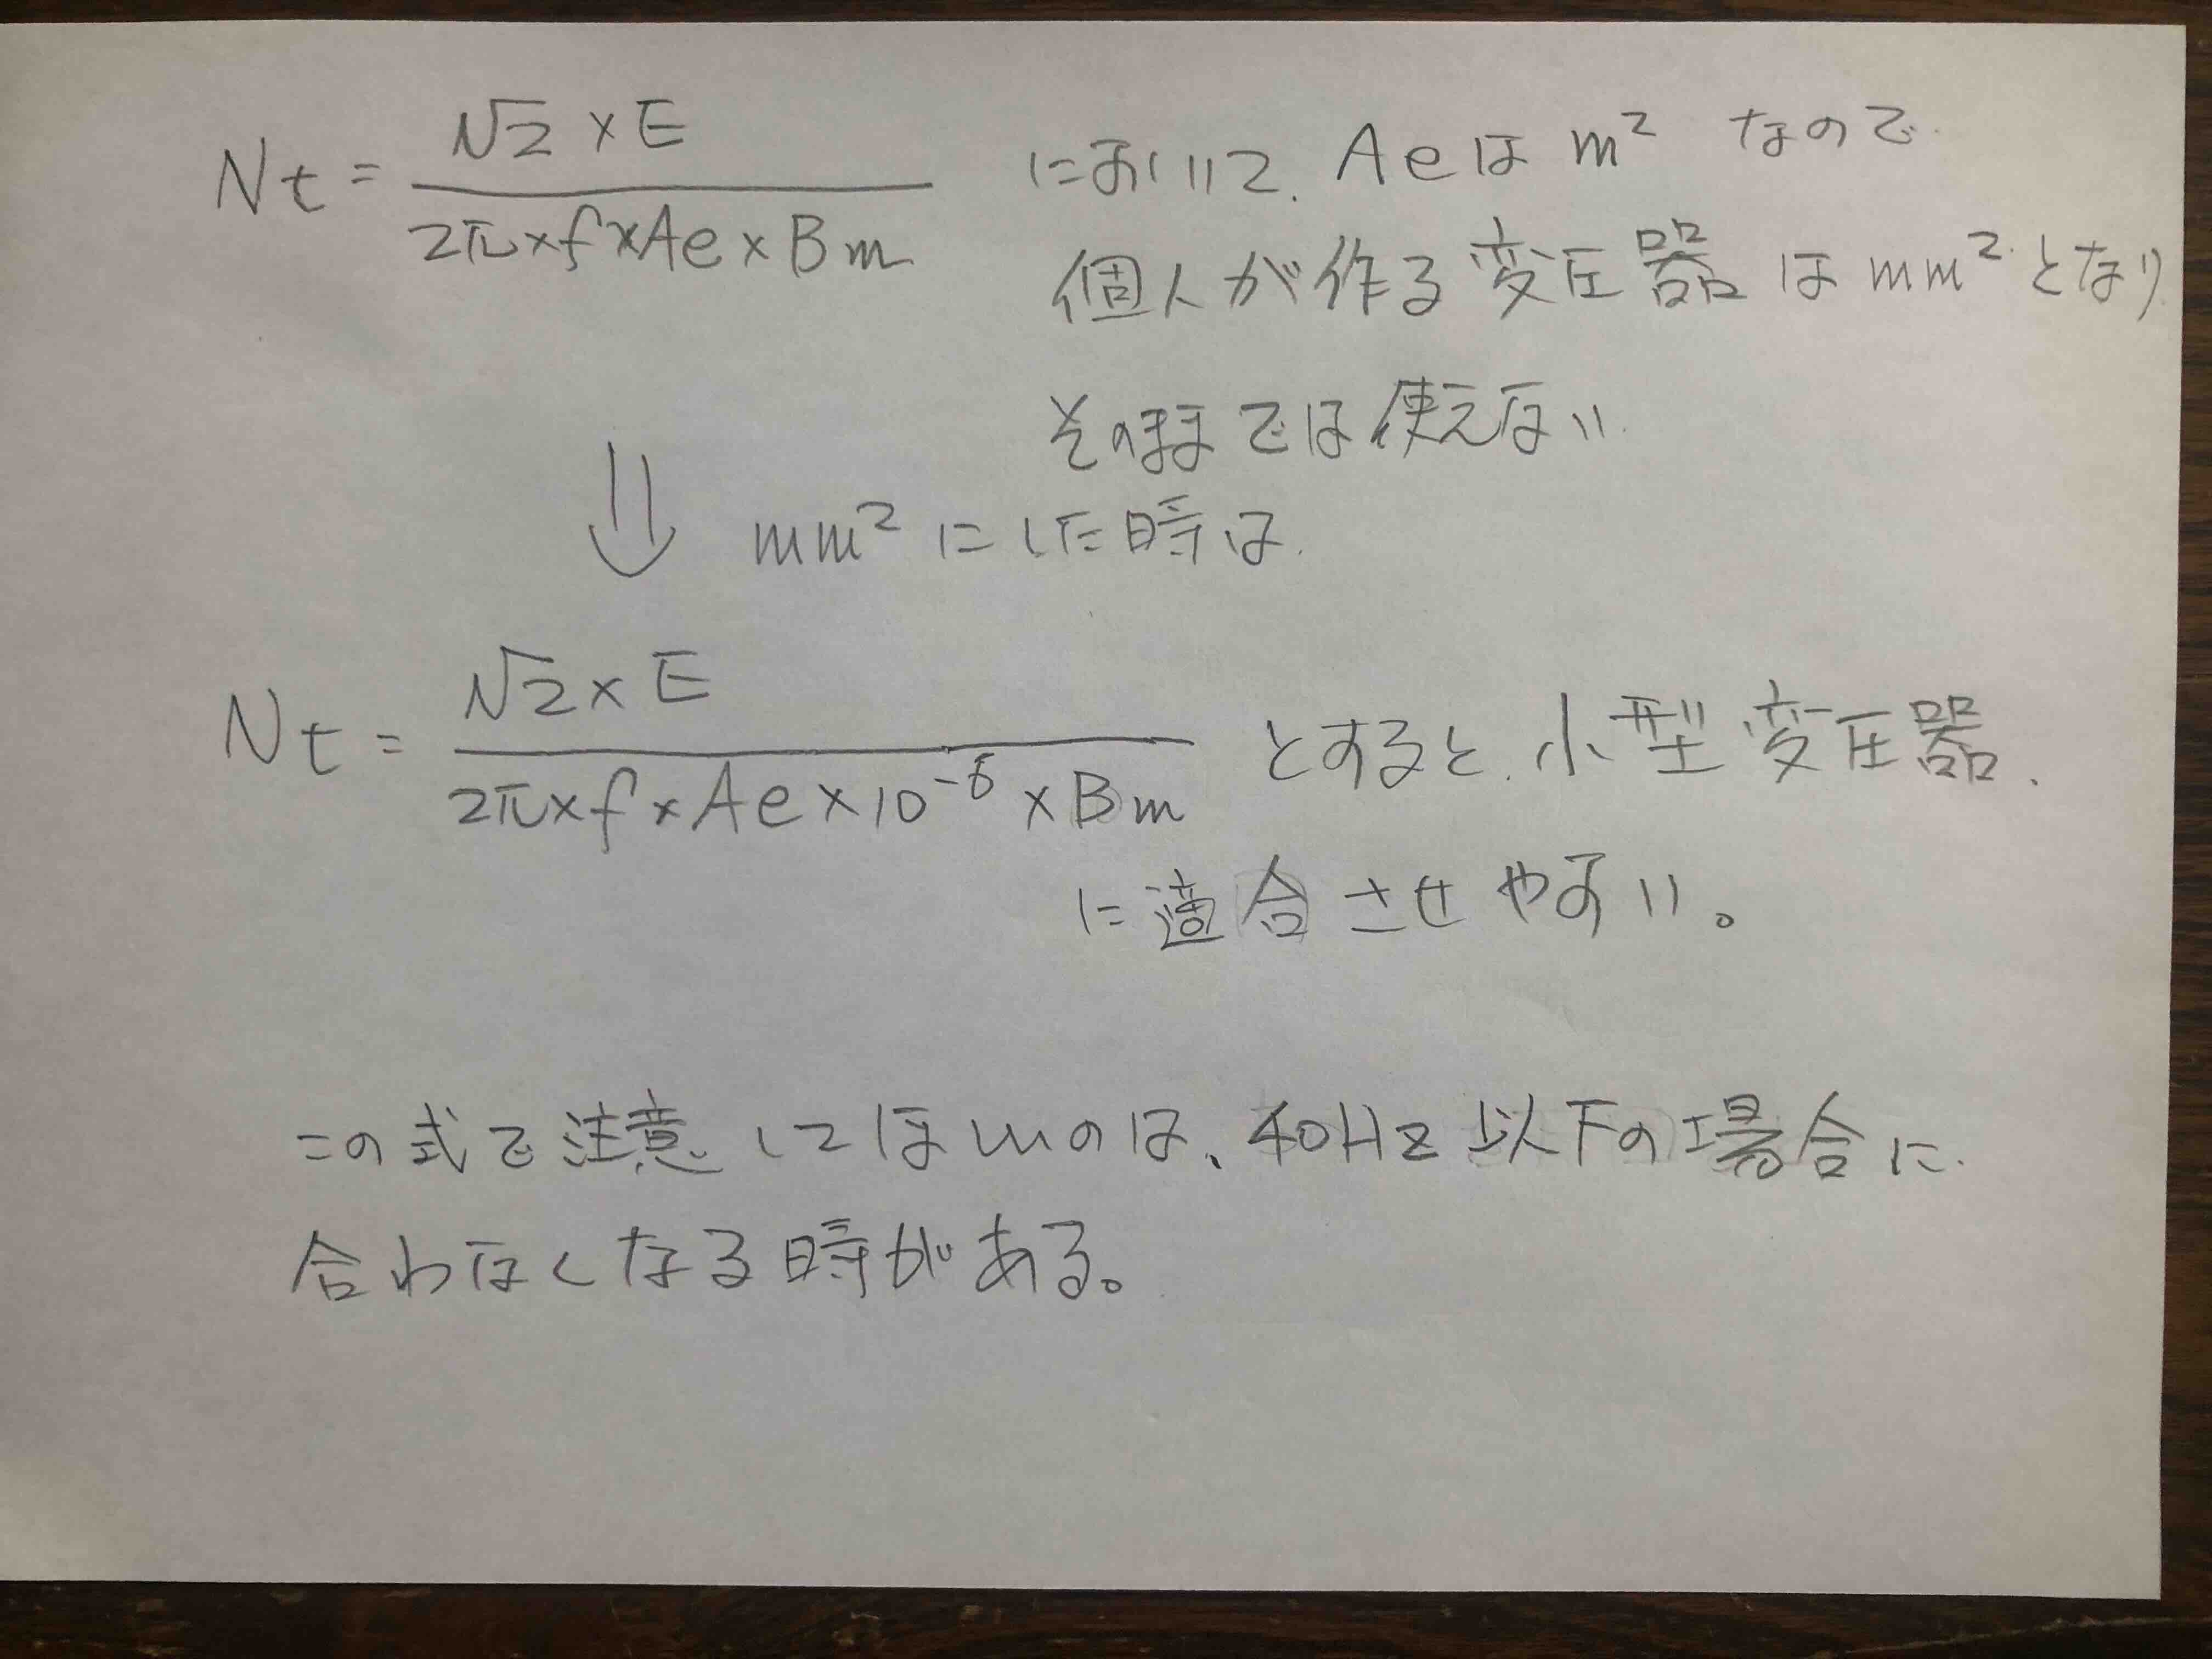 Nt = √2 × E / 2π×f×Ae×Bm において、Aeは m² なので
個人が作る変圧器は mm² となり
そのままでは使えない
⇓ mm² にした時は
Nt = √2 × E / 2π×f×Ae×10⁻⁶×Bm とすると、小型変圧器
に適合させやすい。
この式で注意してほしいのは、40Hz 以下の場合に
合わなくなる時がある。